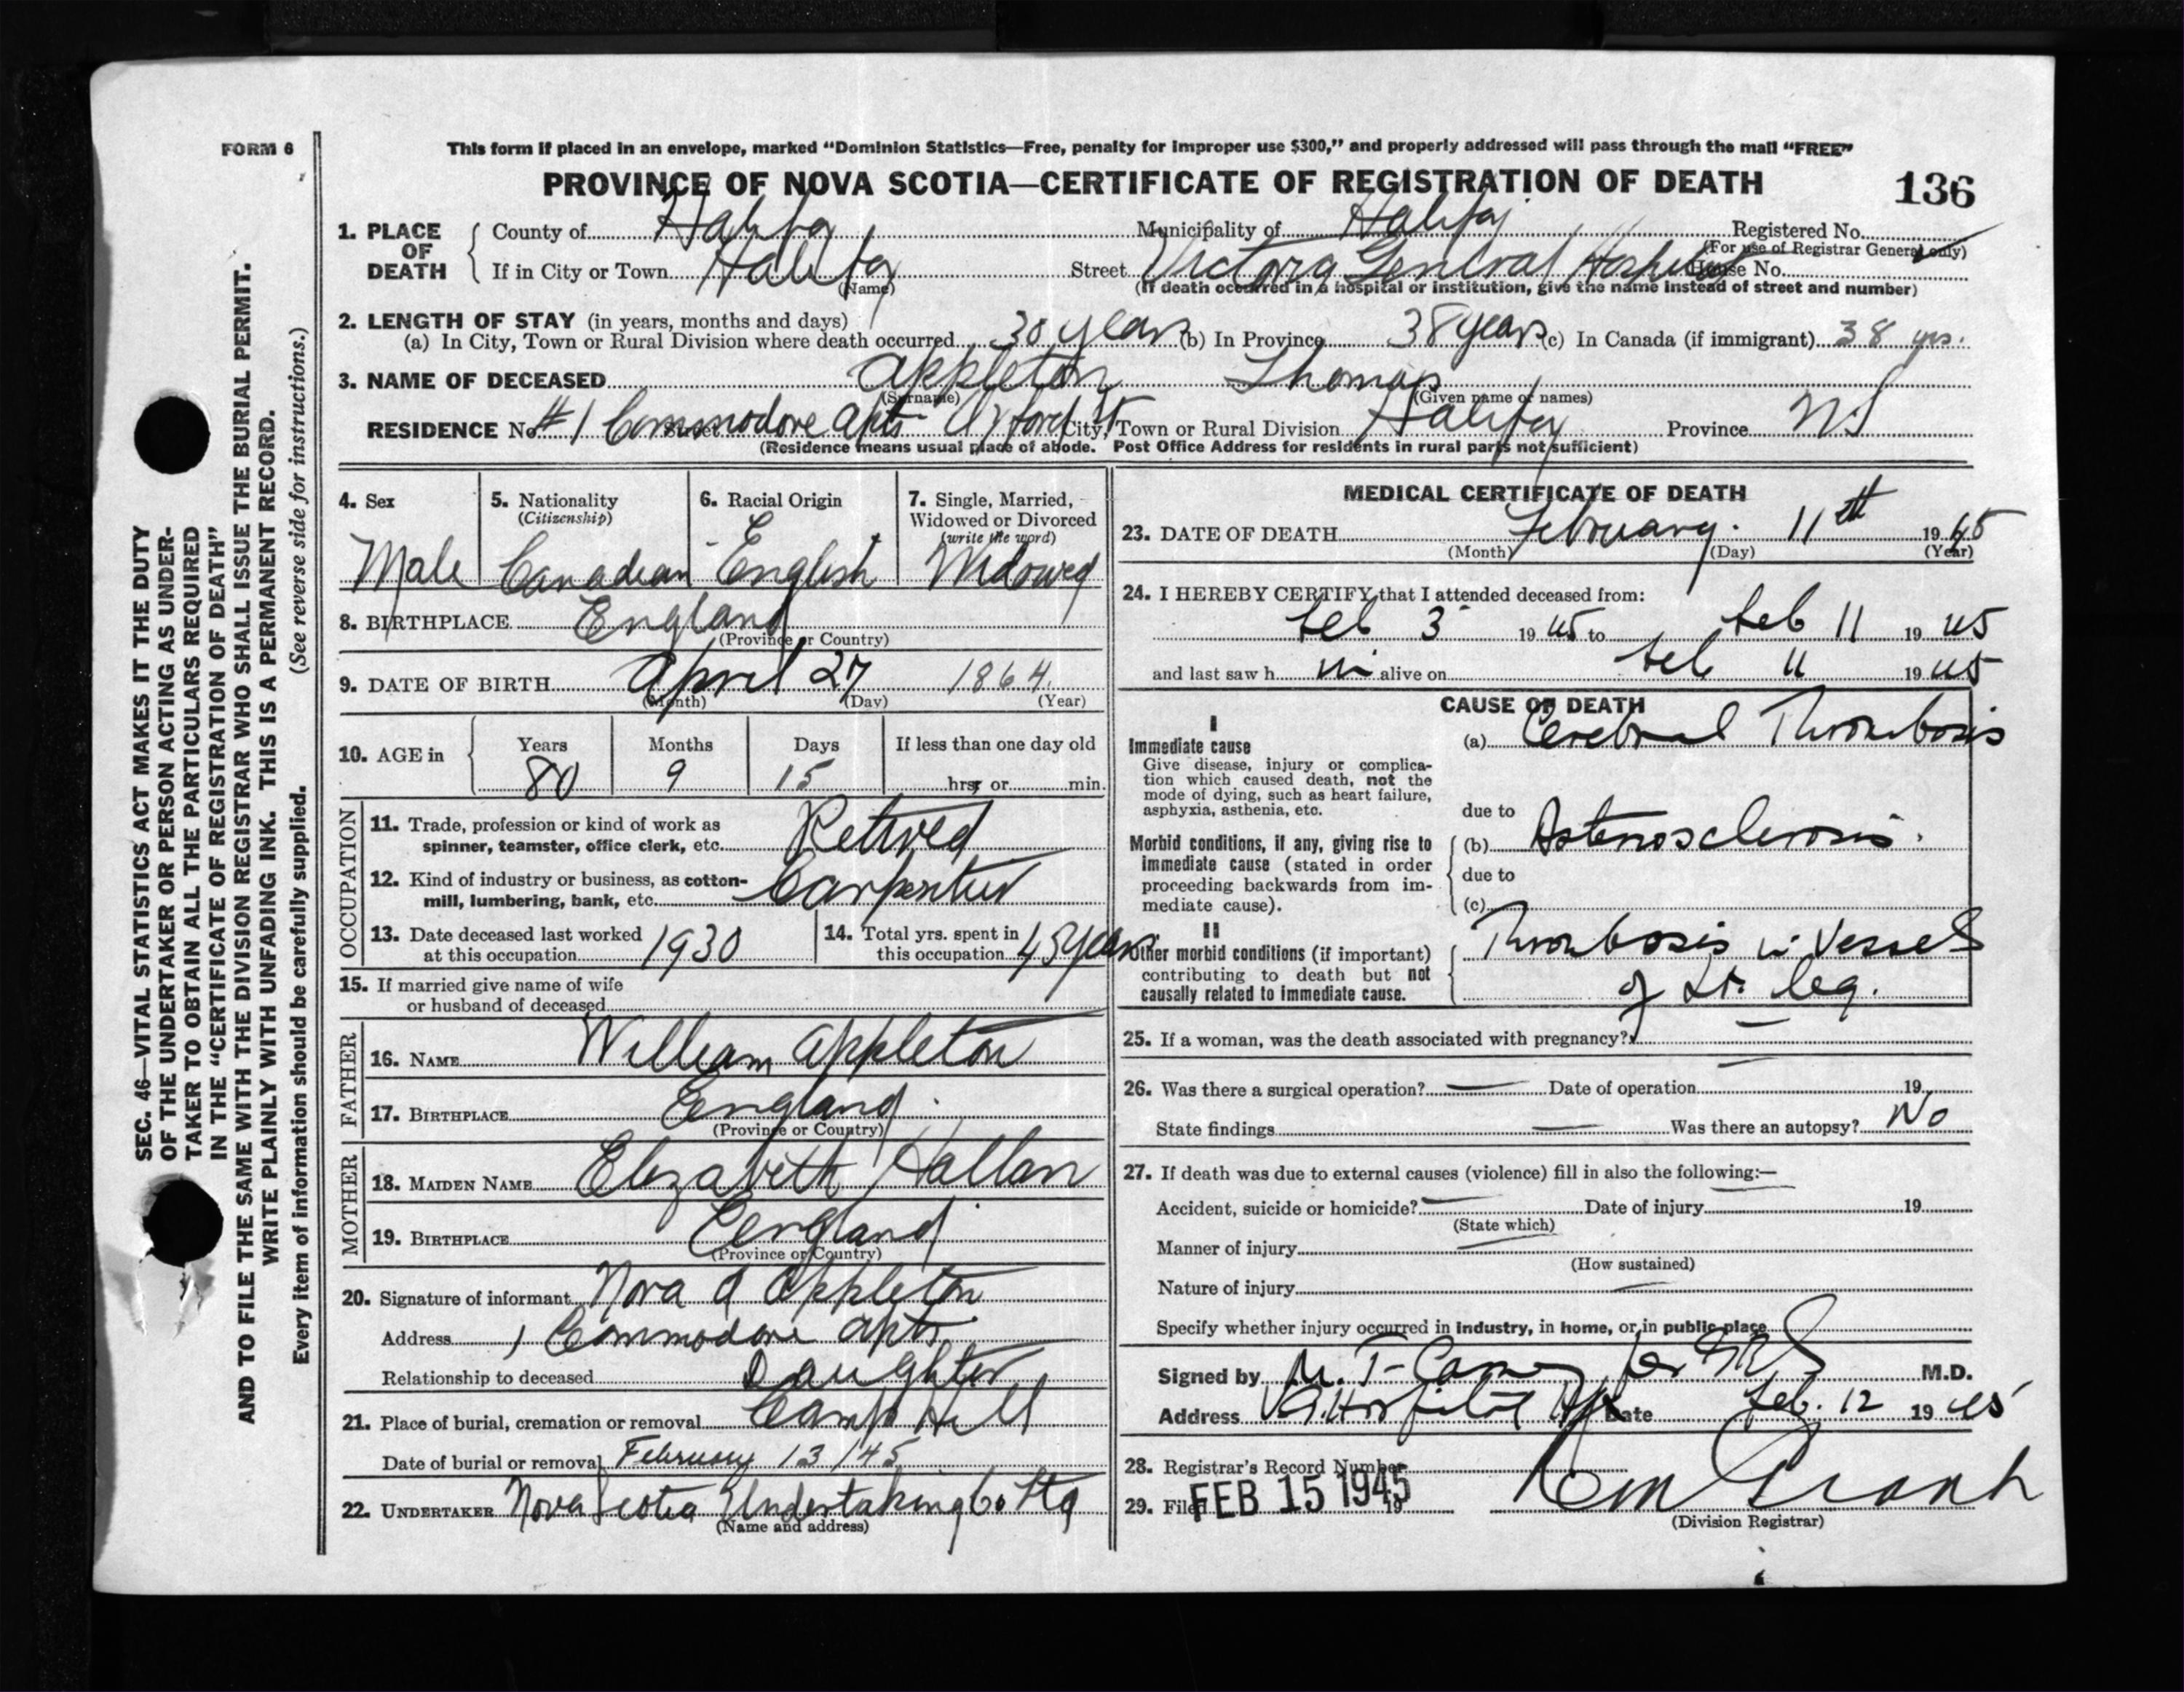 FORM 6
This form if placed in an envelope, marked "Dominion Statistics—Free, penalty for improper use $300," and properly addressed will pass through the mail "FREE"
PROVINCE OF NOVA SCOTIA—CERTIFICATE OF REGISTRATION OF DEATH 136
1. PLACE OF DEATH County of Halifax Municipality of Halifax Registered No.
(For use of Registrar General only)
If in City or Town Halifax Street Victoria General Hospital House No.
(Name) (If death occurred in a hospital or institution, give the name instead of street and number)
2. LENGTH OF STAY (in years, months and days)
(a) In City, Town or Rural Division where death occurred 30 years (b) In Province 38 years (c) In Canada (if immigrant) 38 yrs.
3. NAME OF DECEASED Appleton Thomas
(Surname) (Given name or names)
RESIDENCE No. #1 Commodore Apts Oxford St City, Town or Rural Division Halifax Province NS
(Residence means usual place of abode. Post Office Address for residents in rural parts not sufficient)
4. Sex Male
5. Nationality (Citizenship) Canadian
6. Racial Origin English
7. Single, Married, Widowed or Divorced (write the word) Widowed
8. BIRTHPLACE England
(Province or Country)
9. DATE OF BIRTH April 27 1864
(Month) (Day) (Year)
10. AGE in Years 80 Months 9 Days 15 If less than one day old hrs. or min.
OCCUPATION
11. Trade, profession or kind of work as
spinner, teamster, office clerk, etc. Retired
12. Kind of industry or business, as cotton-
mill, lumbering, bank, etc. Carpenter
13. Date deceased last worked
at this occupation 1930
14. Total yrs. spent in
this occupation 45 years
15. If married give name of wife
or husband of deceased
FATHER
16. NAME William Appleton
17. BIRTHPLACE England
(Province or Country)
MOTHER
18. MAIDEN NAME Elizabeth Hallan
19. BIRTHPLACE England
(Province or Country)
20. Signature of informant Nora A Appleton
Address 1 Commodore Apts.
Relationship to deceased Daughter
21. Place of burial, cremation or removal Camp Hill
Date of burial or removal February 13/45
22. UNDERTAKER Nova Scotia Undertaking Co Ltd
(Name and address)
MEDICAL CERTIFICATE OF DEATH
23. DATE OF DEATH February 11th 1945
(Month) (Day) (Year)
24. I HEREBY CERTIFY that I attended deceased from:
Feb 3 1945 to Feb 11 1945
and last saw h im alive on Feb 11 1945
CAUSE OF DEATH
I
Immediate cause
Give disease, injury or complica-
tion which caused death, not the
mode of dying, such as heart failure,
asphyxia, asthenia, etc.
(a) Cerebral Thrombosis
due to
Morbid conditions, if any, giving rise to
immediate cause (stated in order
proceeding backwards from im-
mediate cause).
(b) Arteriosclerosis.
due to
(c)
II
Other morbid conditions (if important)
contributing to death but not
causally related to immediate cause.
Thrombosis in Vessels
of Lt. leg.
25. If a woman, was the death associated with pregnancy? —
26. Was there a surgical operation? — Date of operation 19
State findings — Was there an autopsy? No
27. If death was due to external causes (violence) fill in also the following:—
Accident, suicide or homicide? — Date of injury 19
(State which)
Manner of injury
(How sustained)
Nature of injury
Specify whether injury occurred in industry, in home, or in public place
Signed by M. T. M.D.
Address V.G. Hospital Hfx Date Feb. 12 1945
28. Registrar's Record Number
29. Filed FEB 15 1945 19
(Division Registrar)
SEC. 46—VITAL STATISTICS ACT MAKES IT THE DUTY
OF THE UNDERTAKER OR PERSON ACTING AS UNDER-
TAKER TO OBTAIN ALL THE PARTICULARS REQUIRED
IN THE "CERTIFICATE OF REGISTRATION OF DEATH"
AND TO FILE THE SAME WITH THE DIVISION REGISTRAR WHO SHALL ISSUE THE BURIAL PERMIT.
WRITE PLAINLY WITH UNFADING INK. THIS IS A PERMANENT RECORD.
Every item of information should be carefully supplied. (See reverse side for instructions.)